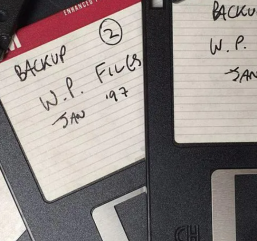 ENHANCED
2
BACKUP
W.P. FILES
JAN '97
BACKU
W.P.
JAN